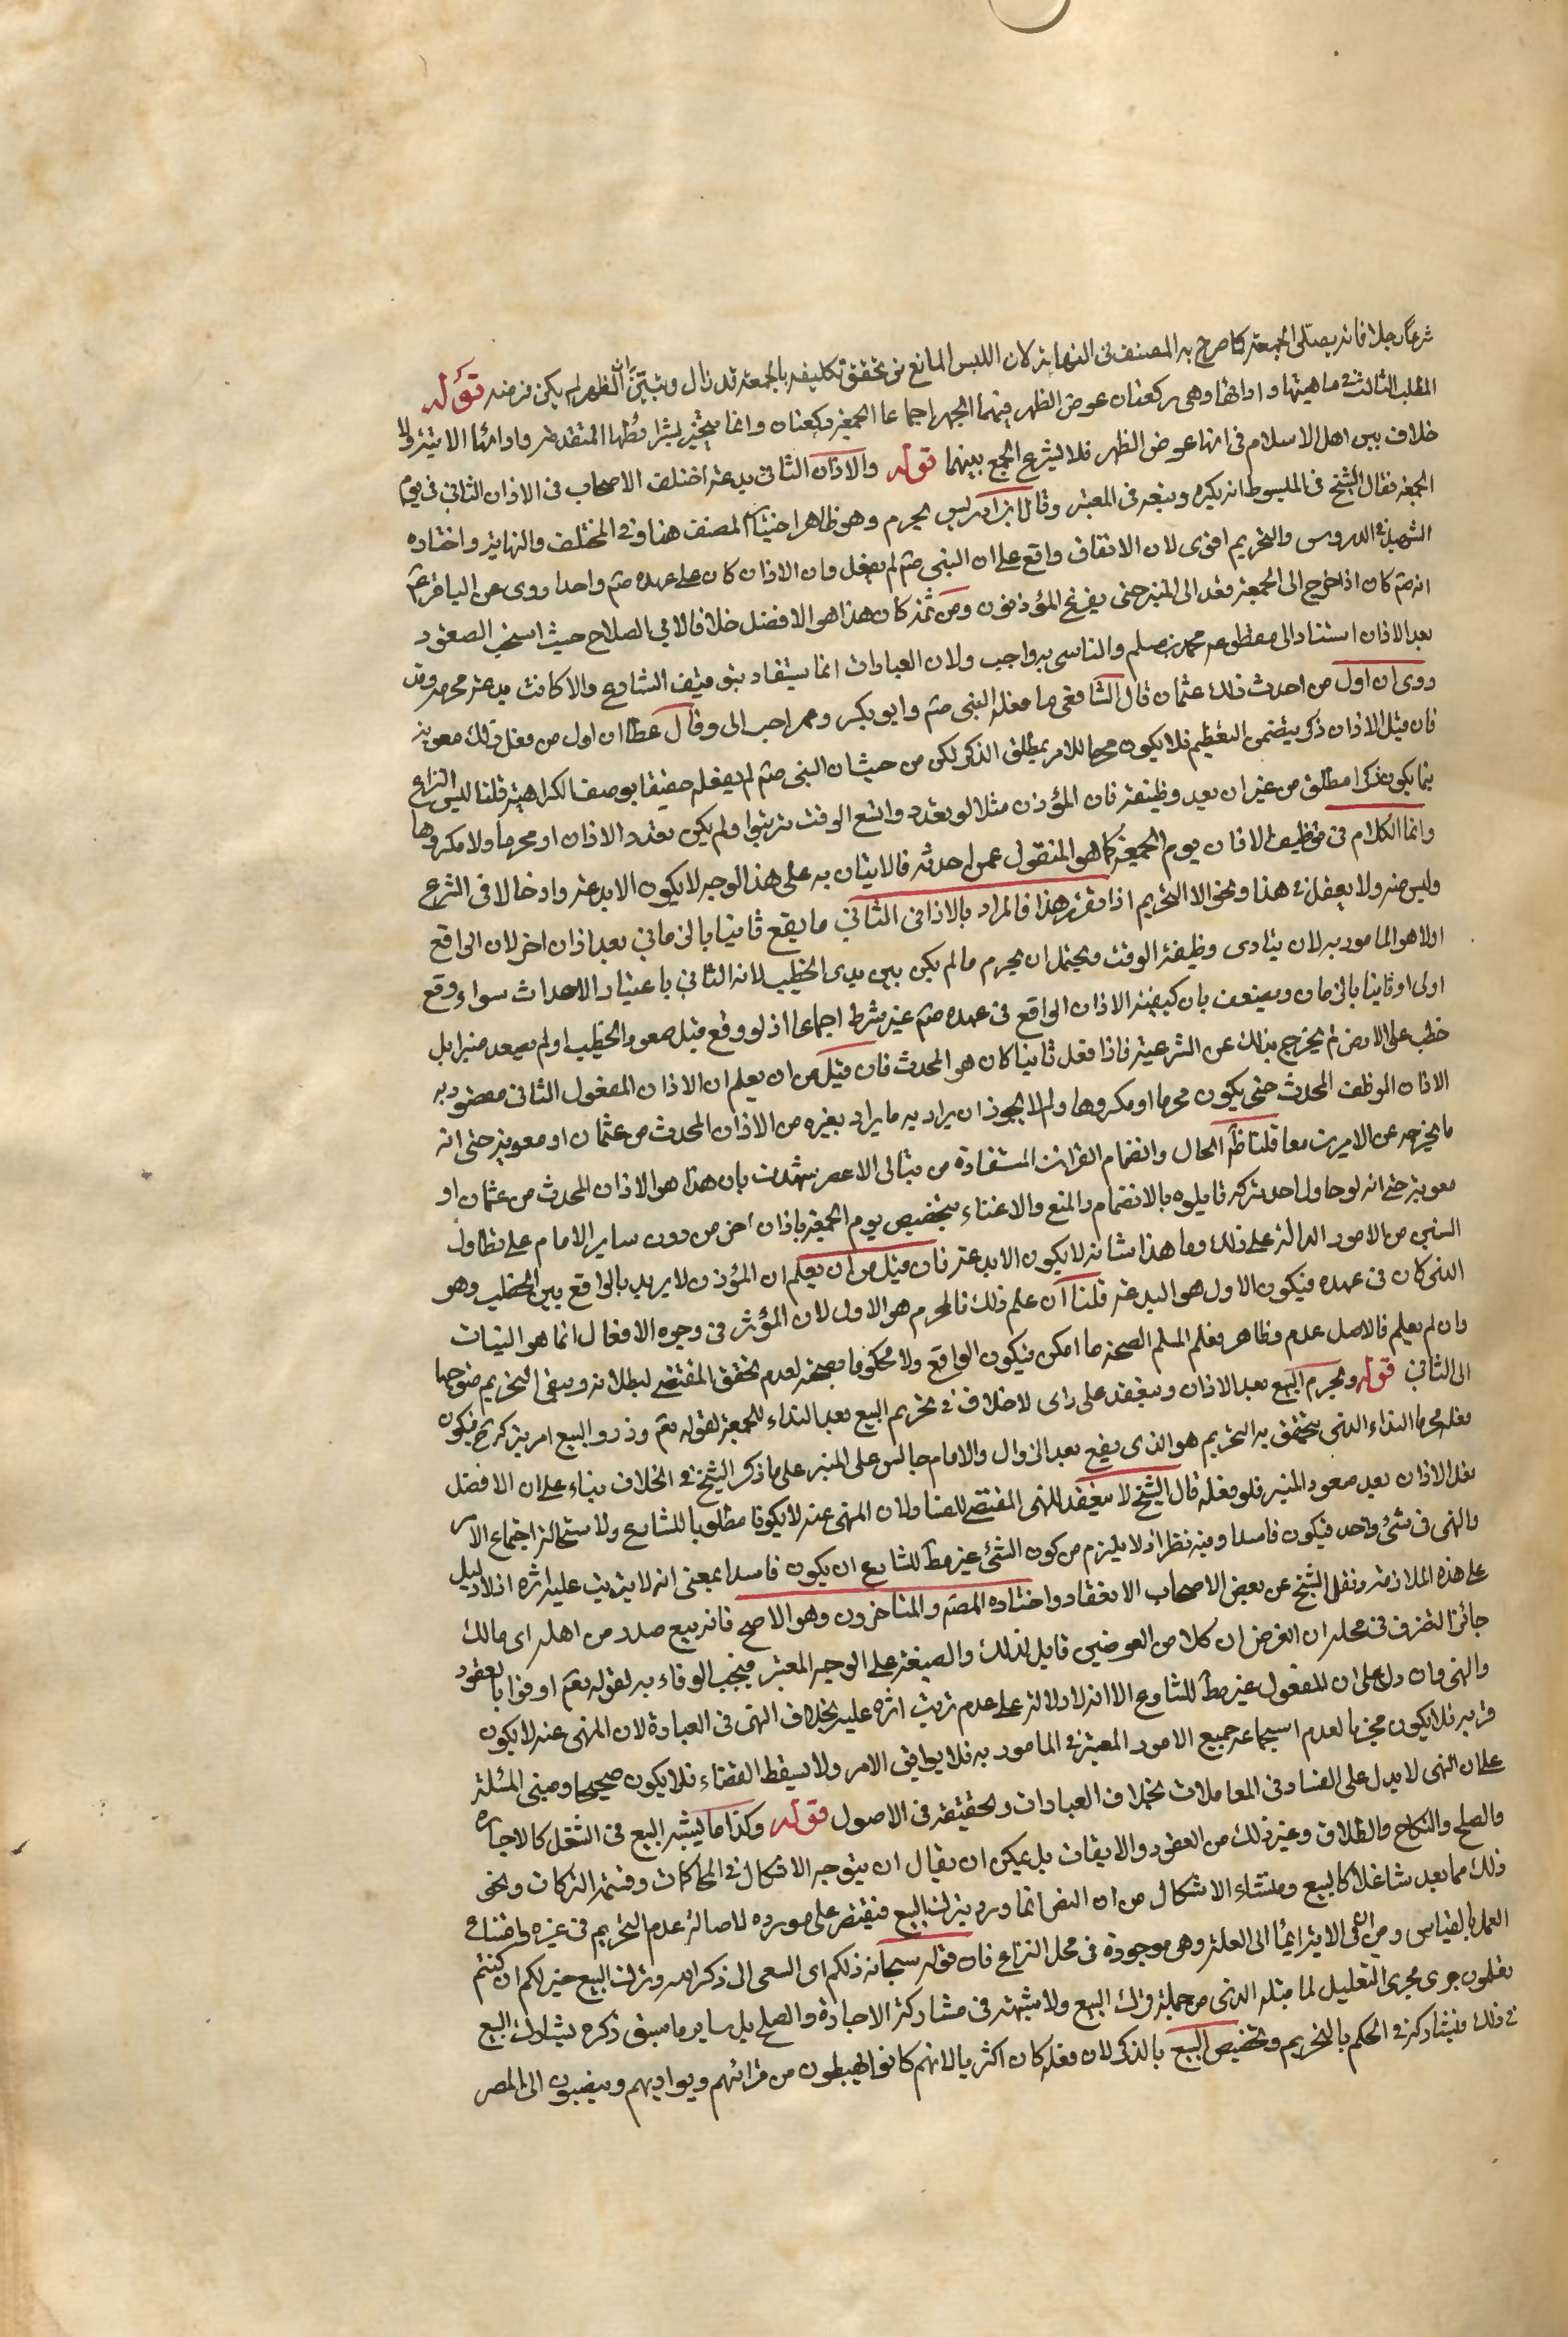 شرعا رجلا فانه يصلى الجمعة كما صرح به المصنف فى النهاية لان اللبس المانع من تحقق تكليفه بالجمعة قد زال وتبين ان الظهر لم يكن فرضه قوله
المطلب الثالث فى ماهيتها وادابها وهى ركعتان عوض الظهر فيهما الجهر اجماعا الجمعة ركعتان وانما بشرائطها المتقدمة وادابها الاتية ولا
خلاف بين اهل الاسلام فى انها عوض الظهر فلا يشرع الجمع بينهما قوله والاذان الثانى بدعة اختلف الاصحاب فى الاذان الثانى فى يوم
الجمعة فقال الشيخ فى المبسوط انه يكره وتبعه فى المعتبر وقال ابن ادريس يحرم وهو ظاهر اختيار المصنف هنا وفى المختلف والنهاية واختاره
الشهيد فى الدروس والتحريم اقوى لان الاتفاق واقع على ان النبى صم لم يفعل وان الاذان كان على عهده صم واحدا روى عن الباقر عم
انه صم كان اذا خرج الى الجمعة قعد الى المنبر حتى يفرغ المؤذنون ومن ثمة كان هذا هو الافضل خلافا لابى الصلاح حيث استحب الصعود
بعد الاذان استنادا الى مقطوعة محمد بن مسلم والتاسى به واجب ولان العبادات انما يستفاد بتوقيف الشارع والا كانت بدعة محرمة وقد
روى ان اول من احدث ذلك عثمان قال الشافعى ما فعله النبى صم وابو بكر وعمر احب الى وقال عطا ان اول من فعل ذلك معوية
فان قيل الاذان ذكر يتضمن التعظيم فلا يكون محرما للامر بمطلق الذكر لكن من حيث ان النبى صم لم يفعله حقيقا بوصف الكراهية قلنا ليس النزاع
فيما يكون ذكرا مطلق من غير ان يعيد وظيفة فان المؤذن مثلا لو تعدد واتسع الوقت ترتبوا ولم يكن تعدد الاذان او محرما ولا مكروها
وانما الكلام فى توظيف الاذان يوم الجمعة كما هو المنقول عمن احدثه فالاتيان به على هذا الوجه لا يكون الا بدعة وادخالا فى الشرع
وليس منه ولا يعقل فى هذا ونحوه الا التحريم اذا تقرر هذا فالمراد بالاذان الثانى ما يقع ثانيا بالزمان بعد اذان اخر لان الواقع
اولا هو المامور به لان يتادى وظيفة الوقت ويحتمل ان يحرم ما لم يكن بين يدى الخطيب لانه الثانى باعتبار الاحداث سواء وقع
اولى او ثانيا بالزمان ويضعف بان كيفية الاذان الواقع فى عهده صم غير شرط اجماعا اذ لو وقع قبل صعود الخطيب او لم يصعد منبرا بل
خطب على الارض لم يخرج بذلك عن الشرعية فاذا فعل ثانيا كان هو المحدث فان قيل من ان يعلم ان الاذان المفعول الثانى مقصود به
الاذان الموظف المحدث حتى يكون محرما او مكروها ولم لا يجوز ان يراد به ما يراد بغيره من الاذان المحدث من عثمان او معوية حتى انه
ما يخرجه عن الامرين معا قلنا ظاهر الحال وانضمام القرائن المستفادة من تتالى الاعصر شهدت بان هذا هو الاذان المحدث من عثمان او
معوية حتى انه لو حاول احد تركه قابلوه بالانضمام والمنع والاعتناء بتخصيص يوم الجمعة باذان اخر من دون ساير الايام على تطاول
السنين من الامور الدالة على ذلك وما هذا شانه لا يكون الا بدعة فان قيل من ان يعلم ان المؤذن لا يريد بالواقع بين الخطيب وهو
الذى كان فى عهده فيكون الاول هو البدعة قلنا ان علم ذلك فالمحرم هو الاول لان المؤثر فى وجوه الافعال انما هو النيات
وان لم يعلم فالاصل عدم وظاهر فعلم المسلم الصحة ما امكن فيكون الواقع ولا محكوما بصحته لعدم تحقق المقتضى لبطلانه ويبقى التحريم متوجها
الى الثانى قوله ويحرم البيع بعد الاذان وينعقد على راى لا خلاف فى تحريم البيع بعد النداء للجمعة لقوله تعم وذروا البيع امر بتركه فيكون
فعله محرما النداء الذى يتحقق به التحريم هو الذى يقع بعد الزوال والامام جالس على المنبر على ما ذكر الشيخ فى الخلاف بناء على ان الافضل
فعل الاذان بعد صعود المنبر فلو فعله قال الشيخ لا ينعقد للنهى المقتضى للفساد ولان المنهى عنه لا يكون مطلوبا للشارع ولاستحالة اجتماع الامر
والنهى فى شئ واحد فيكون فاسدا وفيه نظر اذ لا يلزم من كون الشئ غير مط للشارع ان يكون فاسدا بمعنى انه لا يترتب عليه اثره اذ لا دليل
على هذه الملازمة ونقل الشيخ عن بعض الاصحاب الانعقاد واختاره المصم والمتاخرون وهو الاصح فانه بيع صدر من اهله اى مالك
جائز التصرف فى محله ان الغرض ان كلا من العوضين قابل لذلك والصيغة على الوجه المعتبر فيجب الوفاء به لقوله تعم اوفوا بالعقود
والنهى وان دل على ان المفعول غير مط للشارع الا انه لا دلالة على عدم ترتب اثره عليه بخلاف النهى فى العبادة لان المنهى عنه لا يكون
قربة فلا يكون مجزيا لعدم استجماعه جميع الامور المعتبرة فى المامور به فلا يوافق الامر ولا يسقط القضاء فلا يكون صحيحا ومبنى المسئلة
على ان النهى لا يدل على الفساد فى المعاملات بخلاف العبادات وتحقيقه فى الاصول قوله وكذا ما يشبه البيع فى الشغل كالاجارة
والصلح والنكاح والطلاق وغير ذلك من العقود والايقاعات بل يمكن ان يقال ان يتوجه الاشكال فى المحاكمات وقسمة التركات ونحو
ذلك مما يعد شاغلا كالبيع ومنشاء الاشكال من ان النص انما ورد بترك البيع فيقتصر على مورده لاصالة عدم التحريم فى غيره وامتناع
العمل بالقياس ومن ان فى الاية ايماء الى العلة وهى موجودة فى محل النزاع فان قوله سبحانه ذلكم اى السعى الى ذكر الله وترك البيع خير لكم ان كنتم
تعلمون جرى مجرى التعليل لما قبله الذى من جملة ترك البيع ولا شبهة فى مشاركة الاجارة والصلح بل ساير ما سبق ذكره يشارك البيع
فى ذلك فيشاركه فى الحكم بالتحريم وتخصيص البيع بالذكر لان فعله كان اكثريا لانهم كانوا يهبطون من قرائهم وبواديهم وينصبون الى المصر